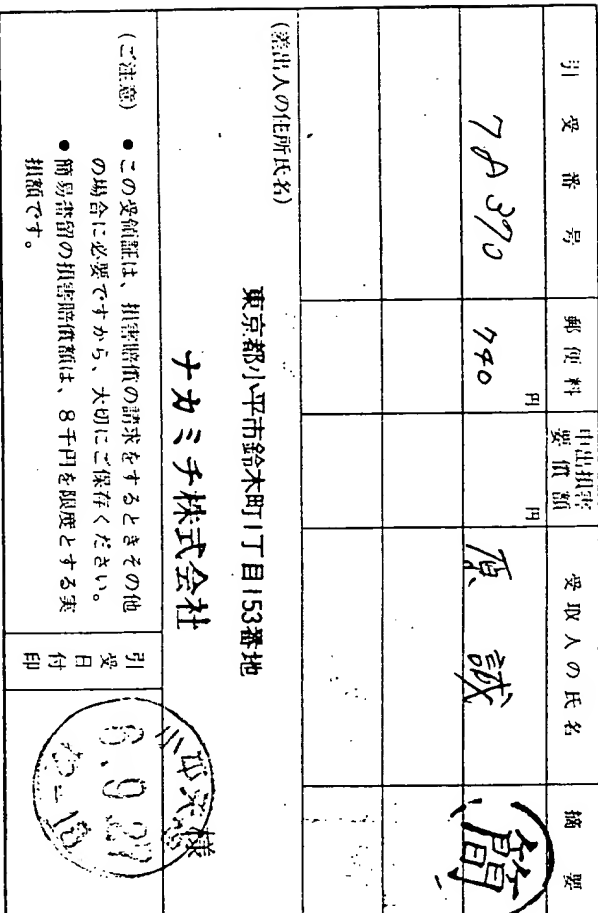 引受番号 郵便料 申出損害要償額 受取人の氏名 摘要
円 円
78390 740 原 誠 簡
(差出人の住所氏名)
東京都小平市鈴木町1丁目153番地
ナカミチ株式会社
様
(ご注意) ● この受領証は、損害賠償の請求をするときその他
の場合に必要ですから、大切にご保存ください。
● 簡易書留の損害賠償額は、8千円を限度とする実
損額です。
引受日付印
6.9.27